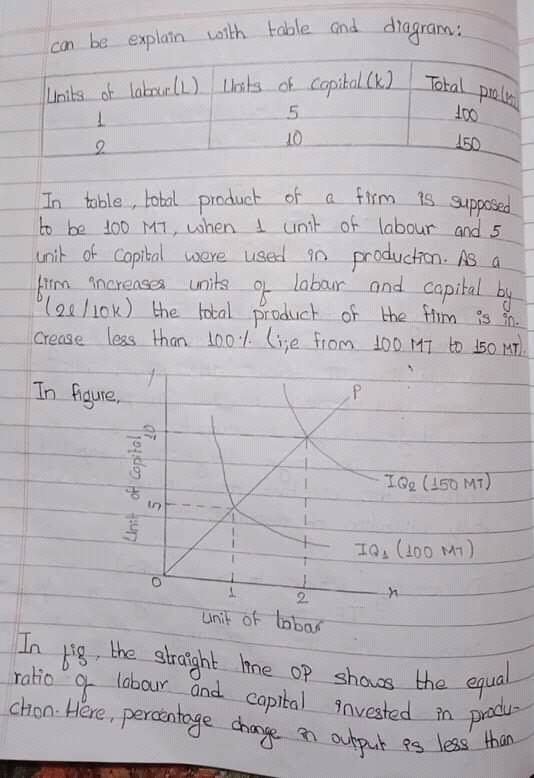 can be explain with table and diagram:
Units of labour(L) Units of capital(K) Total pro(
1 5 100
2 10 150
In table, total product of a firm is supposed
to be 100 MT, when 1 unit of labour and 5
unit of capital were used in production. As a
firm increases units of labour and capital by
(2l/10k) the total product of the firm is in-
crease less than 100%. (i;e from 100 MT to 150 MT).
In figure,
P
10
Unit of capital
IQ2 (150 MT)
5
IQ1 (100 MT)
O
1 2 x
unit of labar
In fig, the straight line OP shows the equal
ratio of labour and capital invested in produ-
ction. Here, percentage change in output is less than